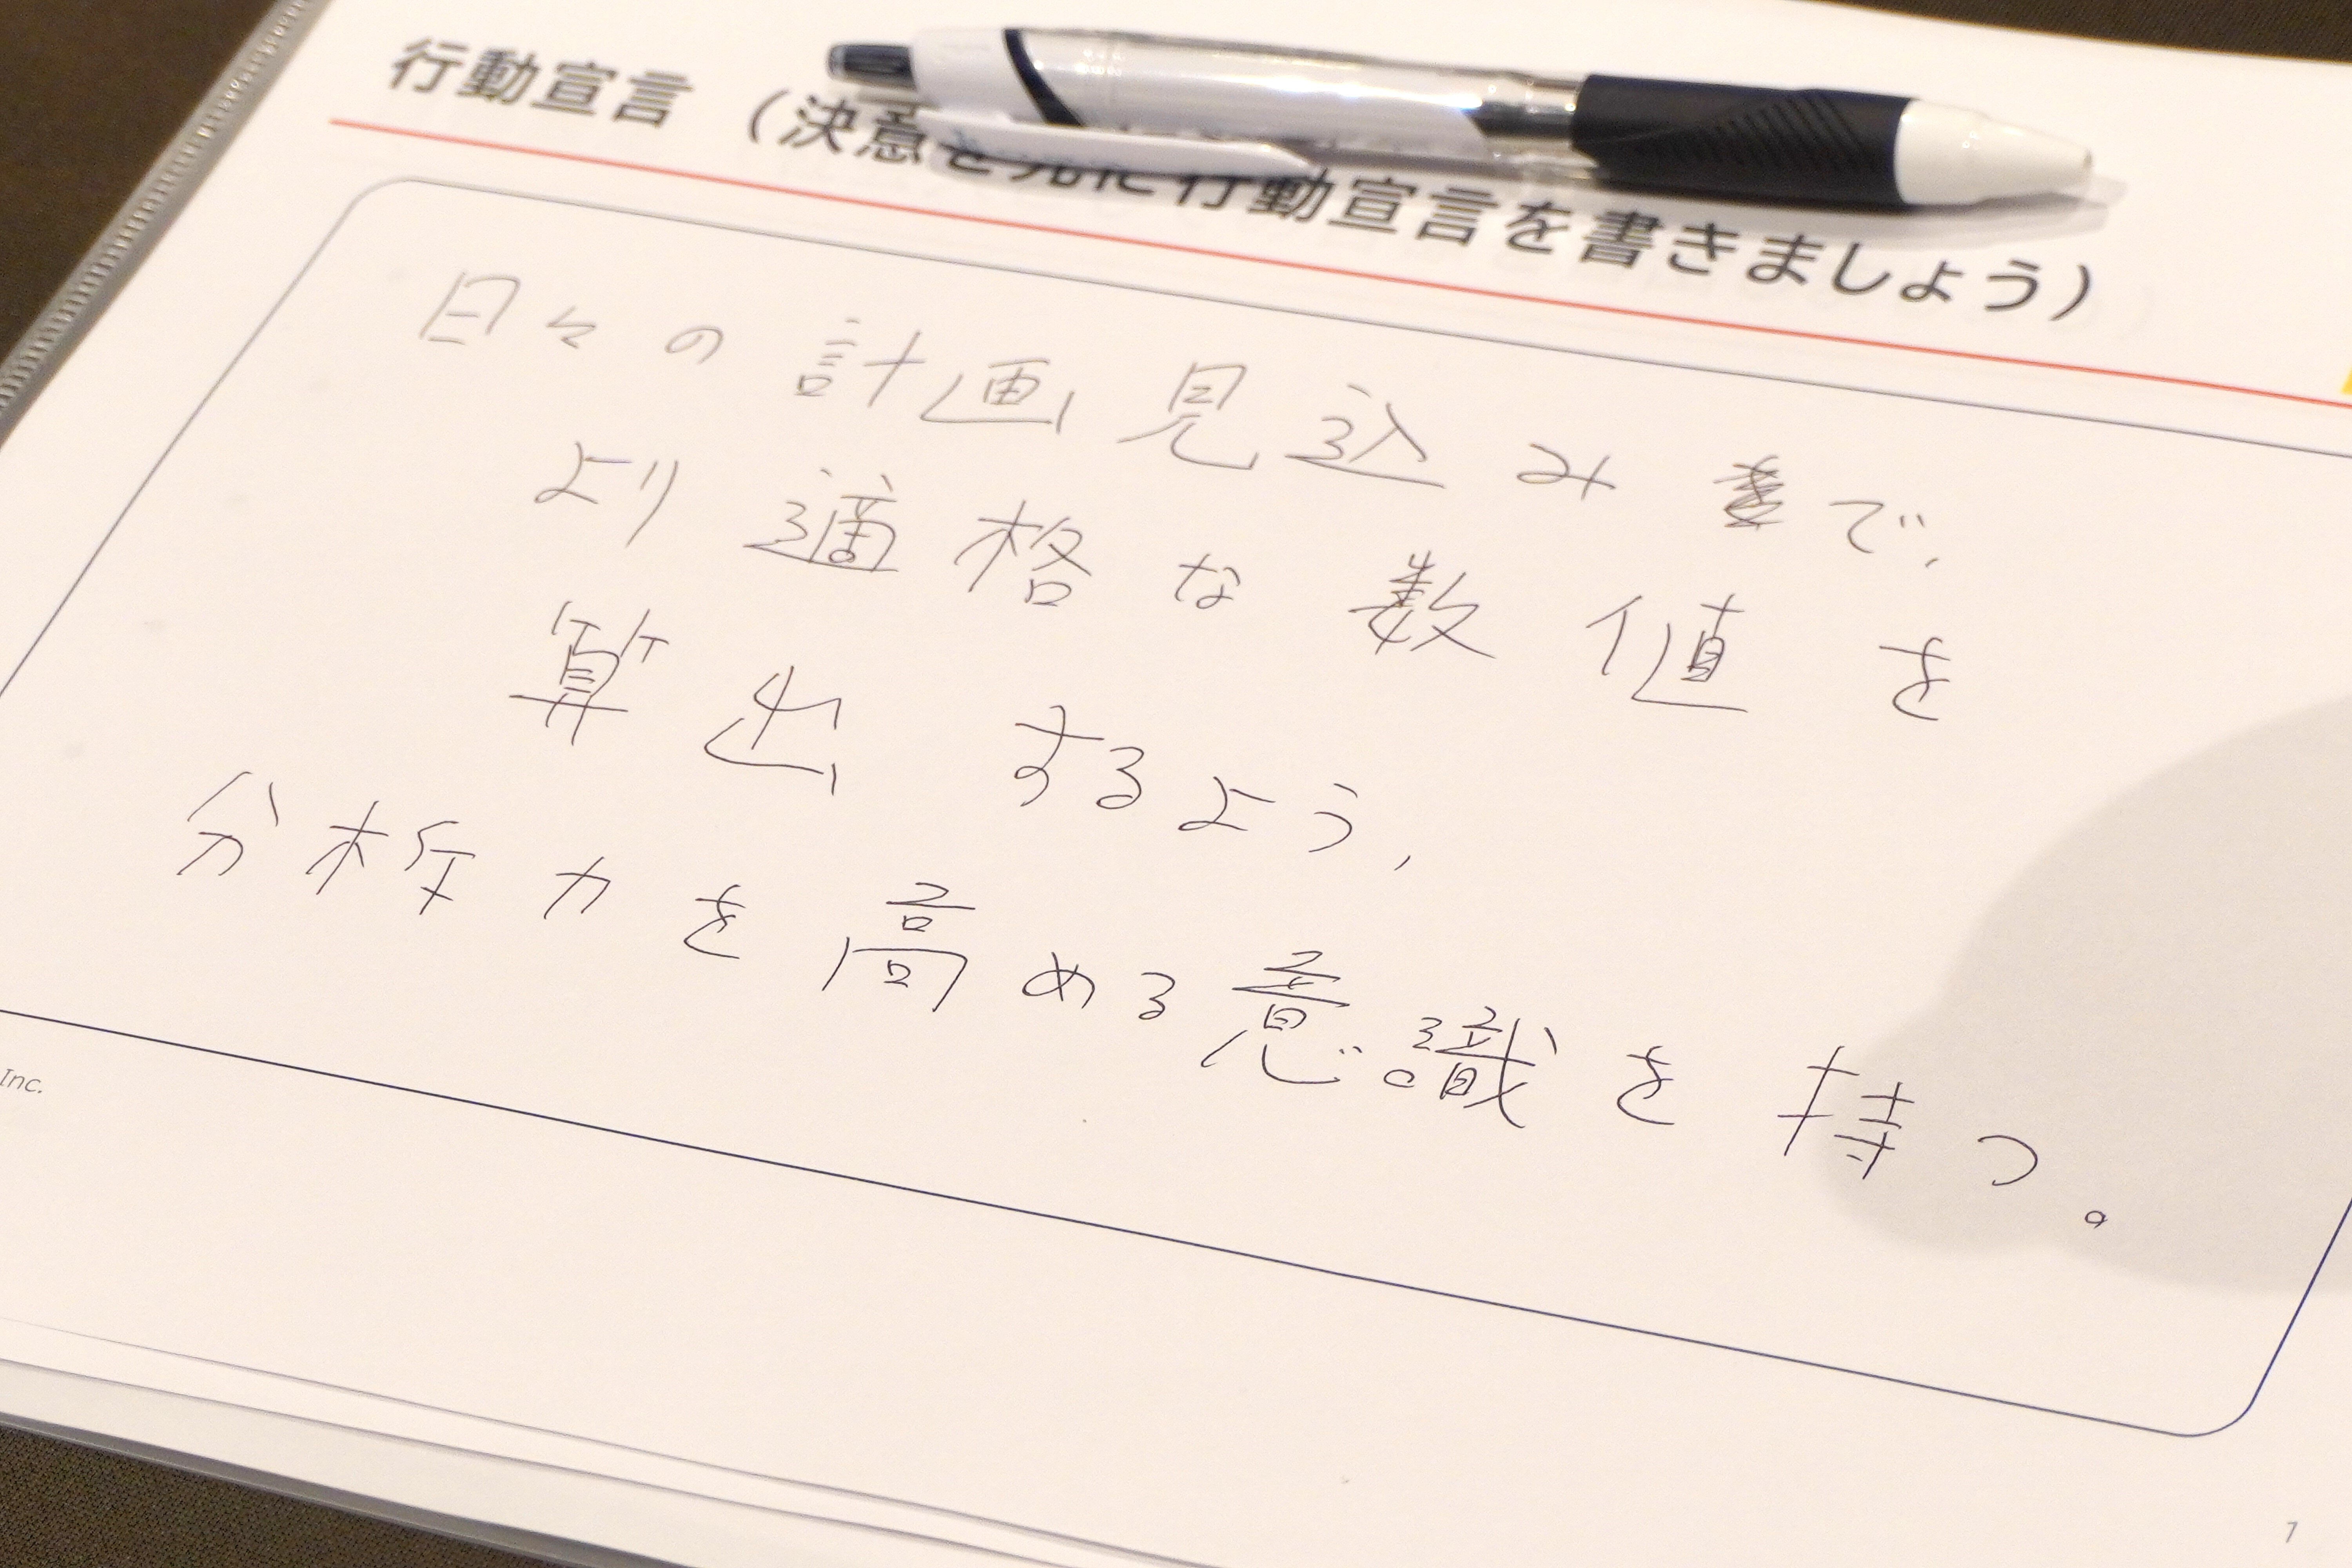 行動宣言 (決意を元に行動宣言を書きましょう)
日々の計画見込みで、
より適格な数値を
算出するよう、
分析力を高める意識を持つ。
Inc.
7